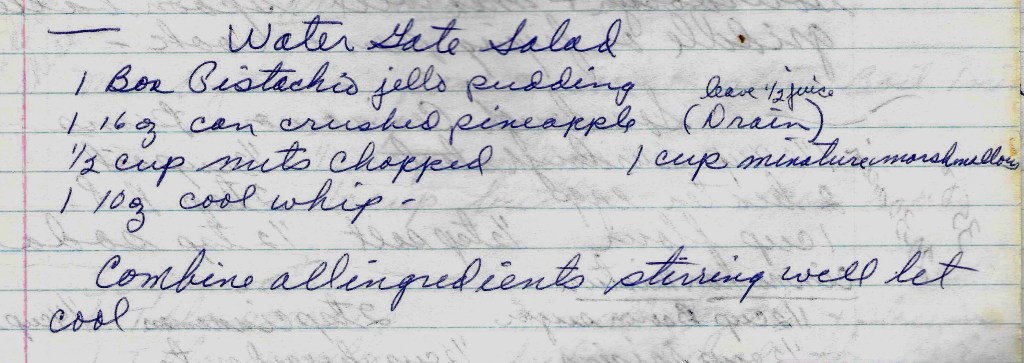 Water Gate Salad
1 Box Pistachio jello pudding
leave 1/2 juice
1 16 oz can crushed pineapple (Drain)
1/2 cup nuts chopped 1 cup minature marshmallows
1 10 oz cool whip -
Combine all ingredients stirring well let
cool